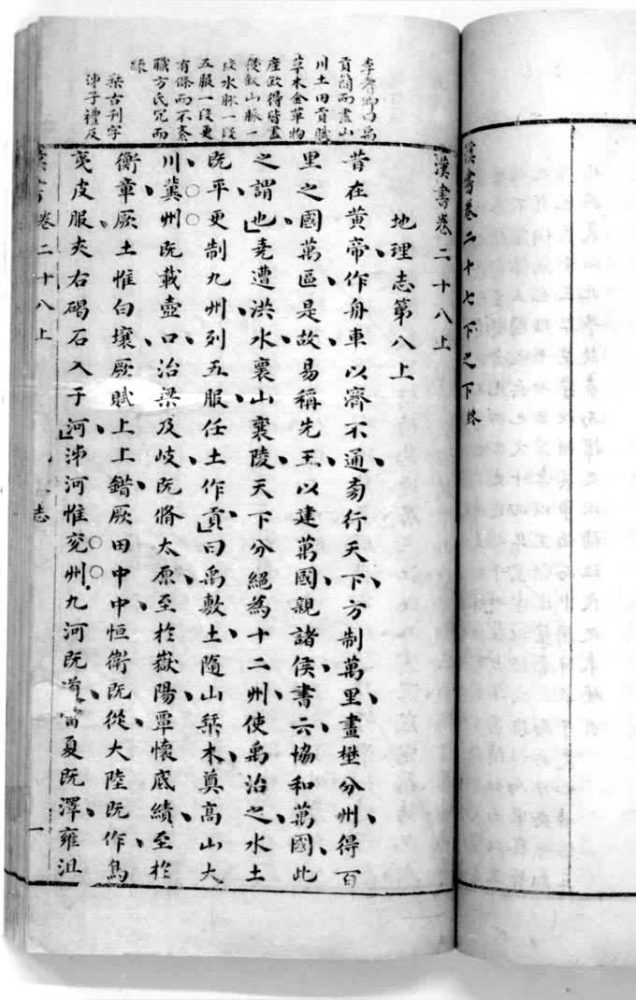 漢書卷二十七下之下終
漢書卷二十八上
地理志第八上
李耆卿曰禹
貢簡而盡山
川土田貢賦
草木金革物
產敘得皆盡
後敘山脉一
段水脉一段
五服一段更
有條而不紊
職方氏冗而
昔在黄帝作舟車以濟不通旁行天下方制萬里畫壄分州得百
里之國萬區是故易稱先王以建萬國親諸侯書云協和萬國此
之謂也堯遭洪水襄山襄陵天下分絕為十二州使禹治之水土
既平更制九州列五服任土作貢曰禹敷土隨山栞木奠高山大
川冀州既載壺口治梁及岐既脩太原至於嶽陽覃懷底績至於
栞古刊字
泲子禮反
衡章厥土惟白壤厥賦上上錯厥田中中恒衛既從大陸既作鳥
夷皮服夾右碣石入于河泲河惟兗州九河既道雷夏既澤雍沮
漢書卷二十八上 志 一